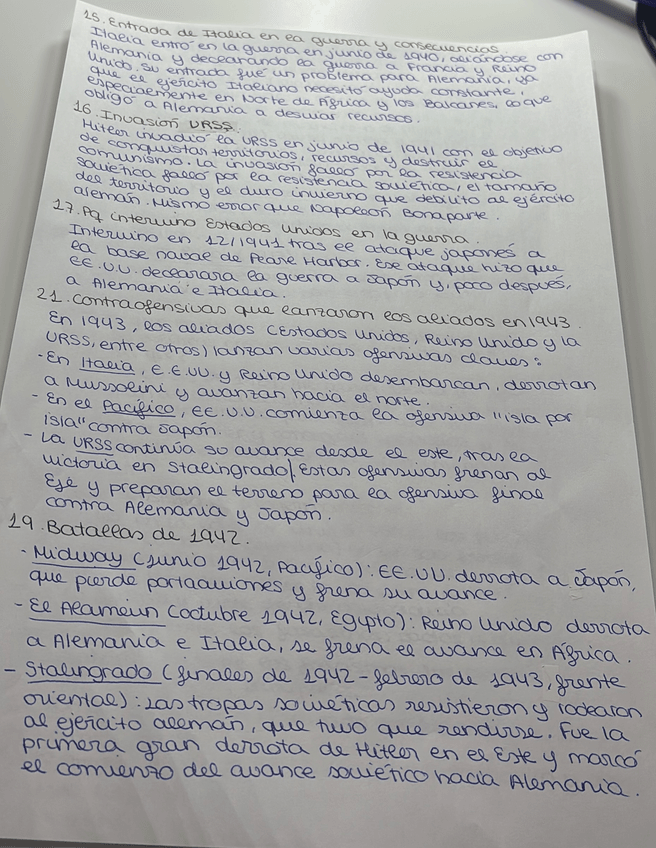 15. Entrada de Italia en la guerra y consecuencias.
Italia entró en la guerra en junio de 1940, aliándose con
Alemania y declarando la guerra a Francia y Reino
Unido. Su entrada fue un problema para Alemania, ya
que el ejército Italiano necesitó ayuda constante,
especialmente en Norte de África y los Balcanes, lo que
obligó a Alemania a desviar recursos.
16. Invasión URSS.
Hitler invadió la URSS en junio de 1941 con el objetivo
de conquistar territorios, recursos y destruir el
comunismo. La invasión falló por la resistencia
soviética falló por la resistencia soviética, el tamaño
del territorio y el duro invierno que debilitó al ejército
alemán. Mismo error que Napoleón Bonaparte.
17. Pq intervino Estados Unidos en la guerra.
Intervino en 12/1941 tras el ataque japonés a
la base naval de Pearl Harbor. Ese ataque hizo que
EE.U.U. declarara la guerra a Japón y, poco después,
a Alemania e Italia.
21. Contraofensivas que lanzaron los aliados en 1943.
En 1943, los aliados (Estados Unidos, Reino Unido y la
URSS, entre otros) lanzan varias ofensivas claves:
- En Italia, E.E.UU. y Reino Unido desembarcan, derrotan
a Mussolini y avanzan hacia el norte.
- En el Pacífico, EE.U.U. comienza la ofensiva "isla por
isla" contra Japón.
- La URSS continúa su avance desde el este, tras la
victoria en Stalingrado/Estas ofensivas frenan al
Eje y preparan el terreno para la ofensiva final
contra Alemania y Japón.
19. Batallas de 1942.
- Midway (junio 1942, Pacífico): EE.UU. derrota a Japón,
que pierde portaaviones y frena su avance.
- El Alamein (octubre 1942, Egipto): Reino Unido derrota
a Alemania e Italia, se frena el avance en África.
- Stalingrado (finales de 1942 - febrero de 1943, frente
oriental): Las tropas soviéticas resistieron y rodearon
al ejército alemán, que tuvo que rendirse. Fue la
primera gran derrota de Hitler en el Este y marcó
el comienzo del avance soviético hacia Alemania.